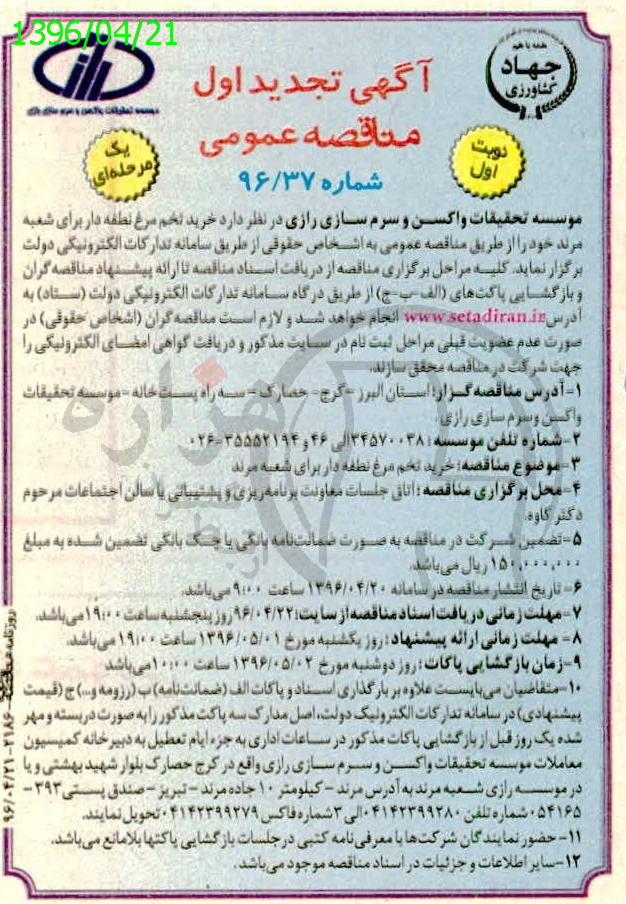 1396/04/21
همه با هم
جهاد
کشاورزی
موسسه تحقیقات واکسن و سرم سازی رازی
آگهی تجدید اول
مناقصه عمومی
شماره ۹۶/۳۷
نوبت
اول
یک
مرحله‌ای
موسسه تحقیقات واکسن و سرم سازی رازی در نظر دارد خرید تخم مرغ نطفه دار برای شعبه
مرند خود را از طریق مناقصه عمومی به اشخاص حقوقی از طریق سامانه تدارکات الکترونیکی دولت
برگزار نماید. کلیه مراحل برگزاری مناقصه از دریافت اسناد مناقصه تا ارائه پیشنهاد مناقصه گران
و بازگشایی پاکت‌های (الف-ب-ج) از طریق درگاه سامانه تدارکات الکترونیکی دولت (ستاد) به
آدرس www.setadiran.ir انجام خواهد شد و لازم است مناقصه گران (اشخاص حقوقی) در
صورت عدم عضویت قبلی مراحل ثبت نام در سایت مذکور و دریافت گواهی امضای الکترونیکی را
جهت شرکت در مناقصه محقق سازند.
۱-آدرس مناقصه گزار: استان البرز -کرج- حصارک - سه راه پست خانه -موسسه تحقیقات
واکسن وسرم سازی رازی.
۲-شماره تلفن موسسه: ۳۴۵۷۰۰۳۸الی ۴۶ و ۳۵۵۵۲۱۹۴-۰۲۶
۳-موضوع مناقصه: خرید تخم مرغ نطفه دار برای شعبه مرند
۴-محل برگزاری مناقصه : اتاق جلسات معاونت برنامه‌ریزی و پشتیبانی یا سالن اجتماعات مرحوم
دکتر کاوه.
۵-تضمین شرکت در مناقصه به صورت ضمانت‌نامه بانکی یا چک بانکی تضمین شده به مبلغ
۱۵۰,۰۰۰,۰۰۰ ریال می‌باشد.
۶- تاریخ انتشار مناقصه در سامانه ۱۳۹۶/۰۴/۲۰ ساعت ۹:۰۰ می‌باشد.
۷-مهلت زمانی دریافت اسناد مناقصه از سایت: ۹۶/۰۴/۲۲ روز پنجشنبه ساعت ۱۹:۰۰ می‌باشد.
۸- مهلت زمانی ارائه پیشنهاد : روز یکشنبه مورخ ۱۳۹۶/۰۵/۰۱ ساعت ۱۹:۰۰ می‌باشد.
۹-زمان بازگشایی پاکات : روز دوشنبه مورخ ۱۳۹۶/۰۵/۰۲ ساعت ۱۰:۰۰ می‌باشد
۱۰-متقاضیان می‌بایست علاوه بر بارگذاری اسناد و پاکات الف (ضمانت‌نامه) ب (رزومه و...) ج (قیمت
پیشنهادی) در سامانه تدارکات الکترونیک دولت، اصل مدارک سه پاکت مذکور را به صورت دربسته و مهر
شده یک روز قبل از بازگشایی پاکات مذکور در ساعات اداری به جزء ایام تعطیل به دبیرخانه کمیسیون
معاملات موسسه تحقیقات واکسن و سرم سازی رازی واقع در کرج حصارک بلوار شهید بهشتی و یا
در موسسه رازی شعبه مرند به آدرس مرند - کیلومتر ۱۰ جاده مرند - تبریز - صندق پستی ۳۹۳-
۰۵۴۱۶۵ شماره تلفن ۰۴۱۴۲۳۹۹۲۸۰ الی ۳ شماره فاکس ۰۴۱۴۲۳۹۹۲۷۹ تحویل نمایند.
۱۱-حضور نمایندگان شرکت‌ها با معرفی نامه کتبی در جلسات بازگشایی پاکتها بلامانع می‌باشد.
۱۲-سایر اطلاعات و جزئیات در اسناد مناقصه موجود می‌باشد.
هزاره
۹۶/۰۴/۲۱-۲۱۸۶